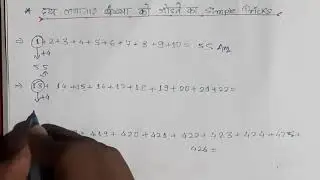 * दस लगातार संख्या को जोड़ने का Simple Tricks
⇒ 1+2+3+4+5+6+7+8+9+10= 55 Ans
↓+4
55
⇒ 13+14+15+16+17+18+19+20+21+22=
↓+4
419+420+421+422+423+424+425+
426=